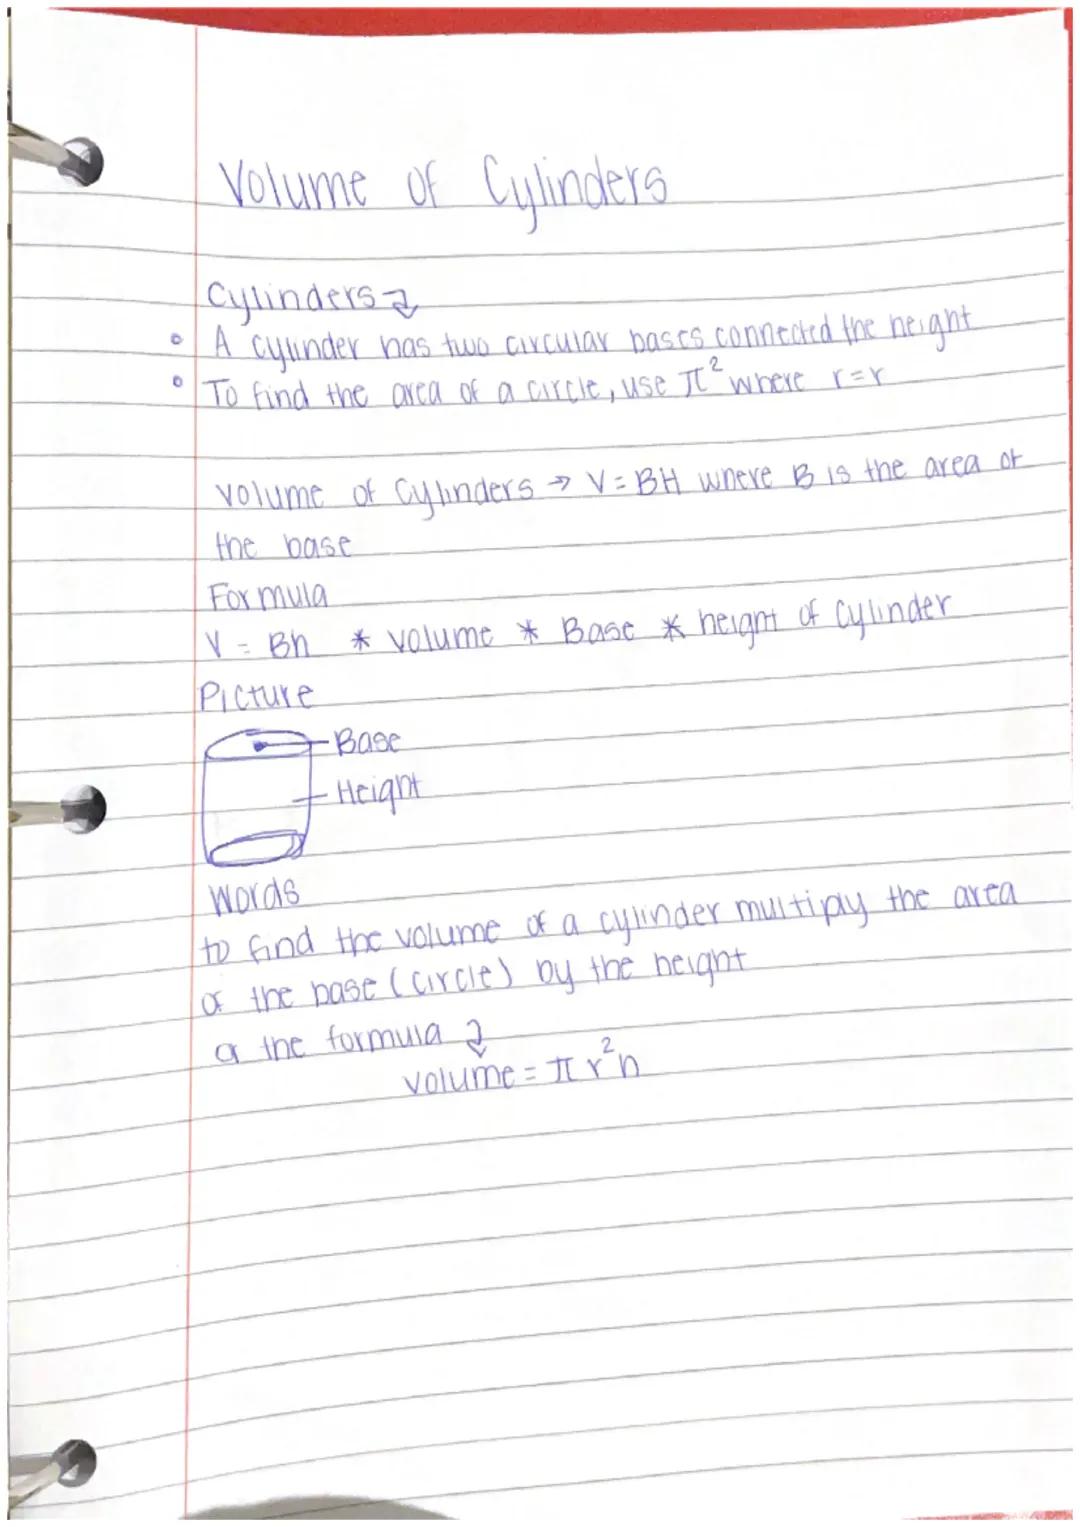 Volume of Cylinders
Cylinders
A cylinder has two circular bases connected the height
To find the area of a circle, use π² where r=r
Volume of Cylinders → V=BH where B is the area of
the base
Formula
V = Bh * volume * Base * height of cylinder
Picture
Base
Height
Words
to find the volume of a cylinder multiply the area
of the base (circle) by the height
or the formula
volume = π r²h